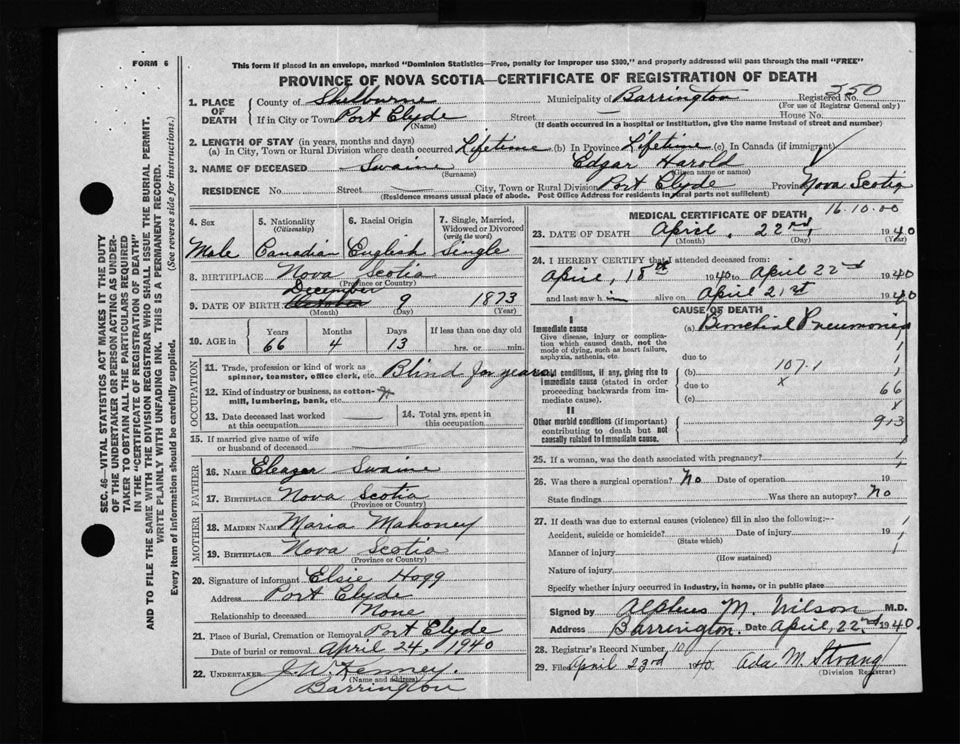 FORM 6
This form if placed in an envelope, marked "Dominion Statistics—Free, penalty for improper use $300," and properly addressed will pass through the mail "FREE"
PROVINCE OF NOVA SCOTIA—CERTIFICATE OF REGISTRATION OF DEATH
SEC. 46—VITAL STATISTICS ACT MAKES IT THE DUTY
OF THE UNDERTAKER OR PERSON ACTING AS UNDER-
TAKER TO OBTAIN ALL THE PARTICULARS REQUIRED
IN THE "CERTIFICATE OF REGISTRATION OF DEATH"
AND TO FILE THE SAME WITH THE DIVISION REGISTRAR WHO SHALL ISSUE THE BURIAL PERMIT.
WRITE PLAINLY WITH UNFADING INK. THIS IS A PERMANENT RECORD.
Every item of information should be carefully supplied. (See reverse side for instructions.)
1. PLACE OF DEATH County of Shelburne Municipality of Barrington Registered No. 550
(For use of Registrar General only)
If in City or Town Port Clyde Street House No.
(Name) (If death occurred in a hospital or institution, give the name instead of street and number)
2. LENGTH OF STAY (in years, months and days)
(a) In City, Town or Rural Division where death occurred Lifetime (b) In Province Lifetime (c) In Canada (if immigrant)
3. NAME OF DECEASED Swaine Edgar Harold
(Surname) (Given name or names)
RESIDENCE No. Street City, Town or Rural Division Port Clyde Province Nova Scotia
(Residence means usual place of abode. Post Office Address for residents in rural parts not sufficient)
4. Sex 5. Nationality (Citizenship) 6. Racial Origin 7. Single, Married, Widowed or Divorced (write the word)
Male Canadian English Single
8. BIRTHPLACE Nova Scotia
(Province or Country)
December
9. DATE OF BIRTH October 9 1873
(Month) (Day) (Year)
10. AGE in Years Months Days If less than one day
66 4 13 hrs. or min.
OCCUPATION
11. Trade, profession or kind of work as spinner, teamster, office clerk, etc. Blind for years
12. Kind of industry or business, as cotton-mill, lumbering, bank, etc.
13. Date deceased last worked at this occupation
14. Total yrs. spent in this occupation
15. If married give name of wife or husband of deceased
FATHER
16. NAME Eleazer Swaine
17. BIRTHPLACE Nova Scotia
(Province or Country)
MOTHER
18. MAIDEN NAME Maria Mahoney
19. BIRTHPLACE Nova Scotia
(Province or Country)
20. Signature of informant Elsie Hogg
Address Port Clyde
Relationship to deceased None
21. Place of Burial, Cremation or Removal Port Clyde
Date of burial or removal April 24, 1940
22. UNDERTAKER J. W. Kenney.
(Name and address)
Barrington
MEDICAL CERTIFICATE OF DEATH 16.10.00
23. DATE OF DEATH April, 22nd, 1940
(Month) (Day) (Year)
24. I HEREBY CERTIFY that I attended deceased from:
April, 18th 1940 to April 22nd 1940
and last saw h im alive on April 21st 1940
CAUSE OF DEATH
I
Immediate cause
Give disease, injury or complication which caused death, not the mode of dying, such as heart failure, asphyxia, asthenia, etc.
(a) Bronchial Pneumonia
due to
Morbid conditions, if any, giving rise to immediate cause (stated in order proceeding backwards from immediate cause).
(b) 107.1
due to x 66
(c)
II
Other morbid conditions (if important) contributing to death but not causally related to immediate cause.
913
25. If a woman, was the death associated with pregnancy?
26. Was there a surgical operation? No Date of operation 19
State findings Was there an autopsy? No
27. If death was due to external causes (violence) fill in also the following:—
Accident, suicide or homicide? Date of injury 19
(State which)
Manner of injury
(How sustained)
Nature of injury
Specify whether injury occurred in industry, in home, or in public place
Signed by Alpheus M. Wilson M.D.
Address Barrington. Date April, 22nd 1940.
28. Registrar's Record Number 10
29. Filed April 23rd 1940 Ada M. Strang
(Division Registrar)